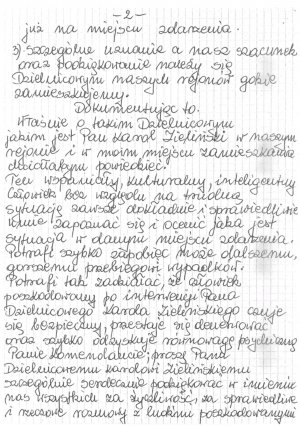 - 2 -
już na miejscu zdarzenia.
3) szczególne uznanie a nasz szacunek
oraz podziękowanie należy się
Dzielnicowym naszym rejonów gdzie
zamieszkujemy.
Dokumentując to.
Właśnie o takim Dzielnicowym
jakim jest Pan Karol Zieliński w naszym
rejonie i w moim miejscu zamieszkania
chciałabym powiedzieć.
Ten wspaniały, kulturalny, inteligentny
człowiek bez względu na trudną
sytuację zawsze dokładnie i sprawiedliwie
umie zapoznać się i ocenić jaka jest
sytuacja w danym miejscu zdarzenia.
Potrafi szybko zapobiec może dalszemu,
gorszemu przebiegowi wypadków.
Potrafi tak zadziałać, że człowiek
poszkodowany po interwencji Pana
Dzielnicowego Karola Zielińskiego czuje
się bezpieczny, przestaje się denerwować
oraz szybko odzyskuje równowagę psychiczną
Panie Komendancie, proszę Pana
Dzielnicowemu Karolowi Zielińskiemu
szczególnie serdecznie podziękować w imieniu
nas wszystkich za życzliwość, za sprawiedliwe
i rzeczowe rozmowy z ludźmi poszkodowanymi